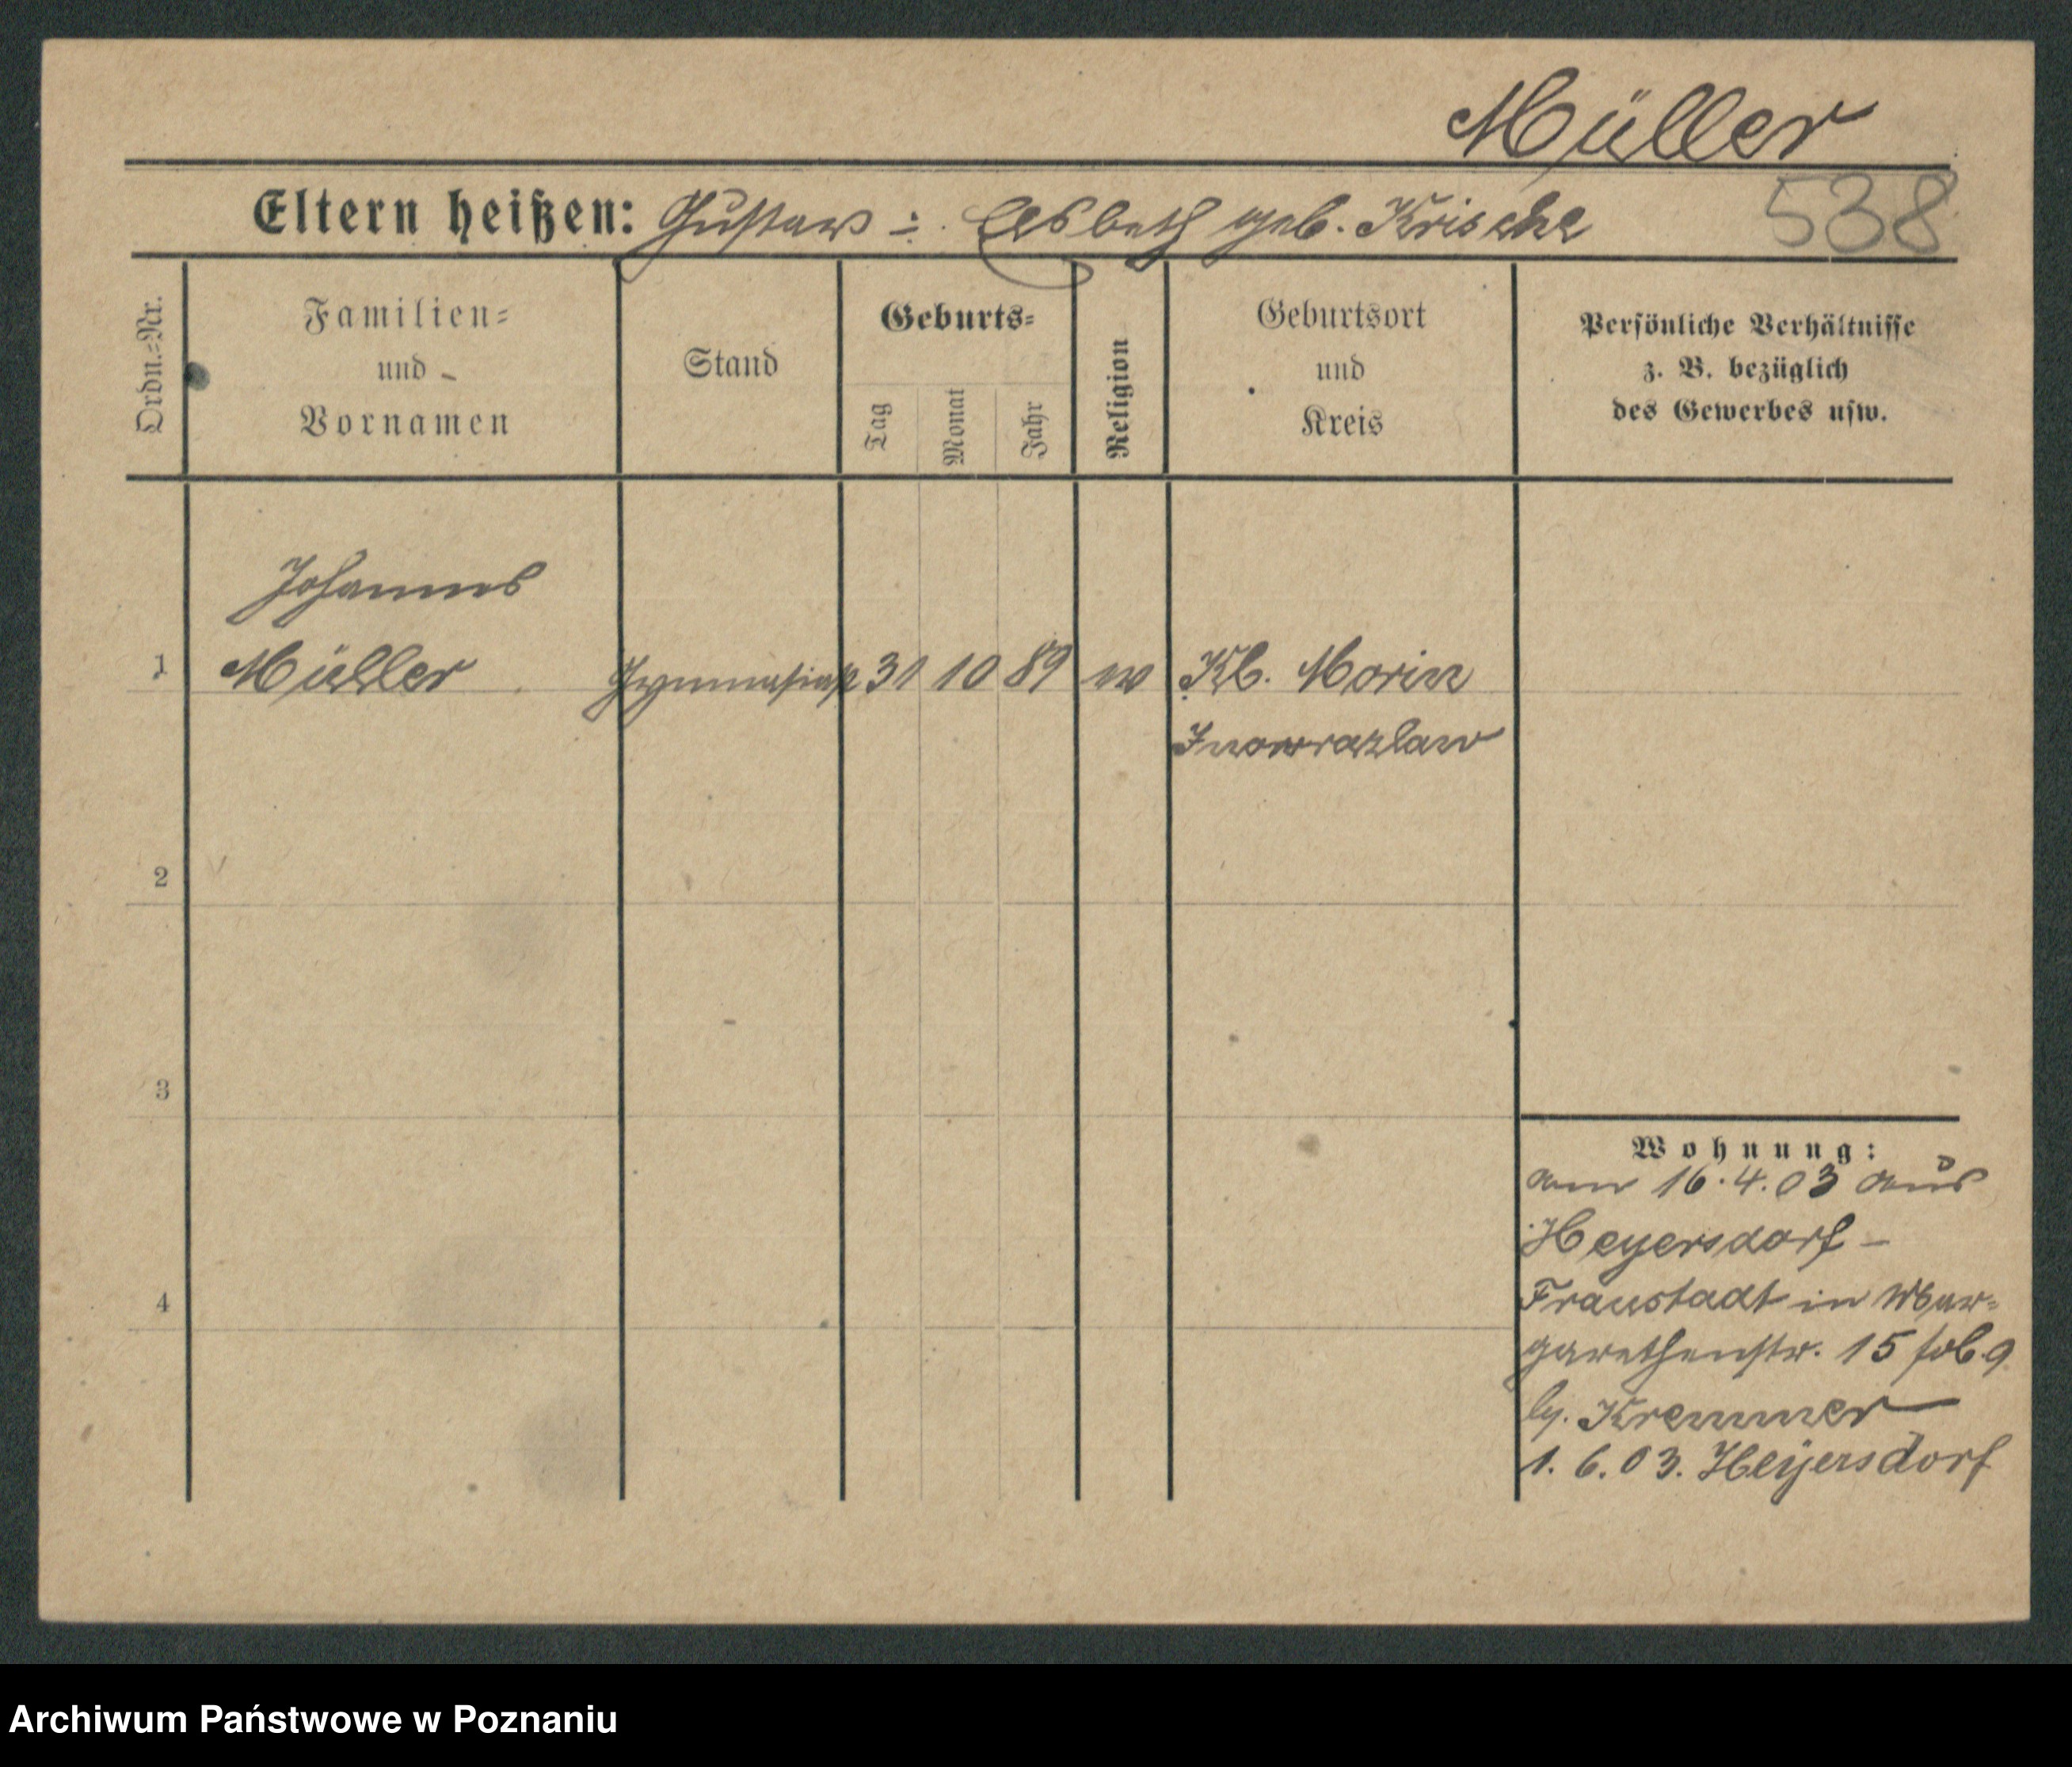 Müller
Eltern heißen: Gustav ÷ Elsbeth geb. Krische 538
Ordn.=Nr.
Familien=
und
Vornamen
Stand
Geburts=
Tag
Monat
Jahr
Religion
Geburtsort
und
Kreis
Persönliche Verhältnisse
z. B. bezüglich
des Gewerbes usw.
Johannes
1 Müller Gymnasiast 31 10 89 Kl. Morin
Inowrazlaw
2
3
4
Wohnung:
am 16.4.03 aus
Heyersdorf -
Fraustadt in Mar=
garethenstr. 15
Kremmer
1. 6. 03. Heyersdorf
Archiwum Państwowe w Poznaniu